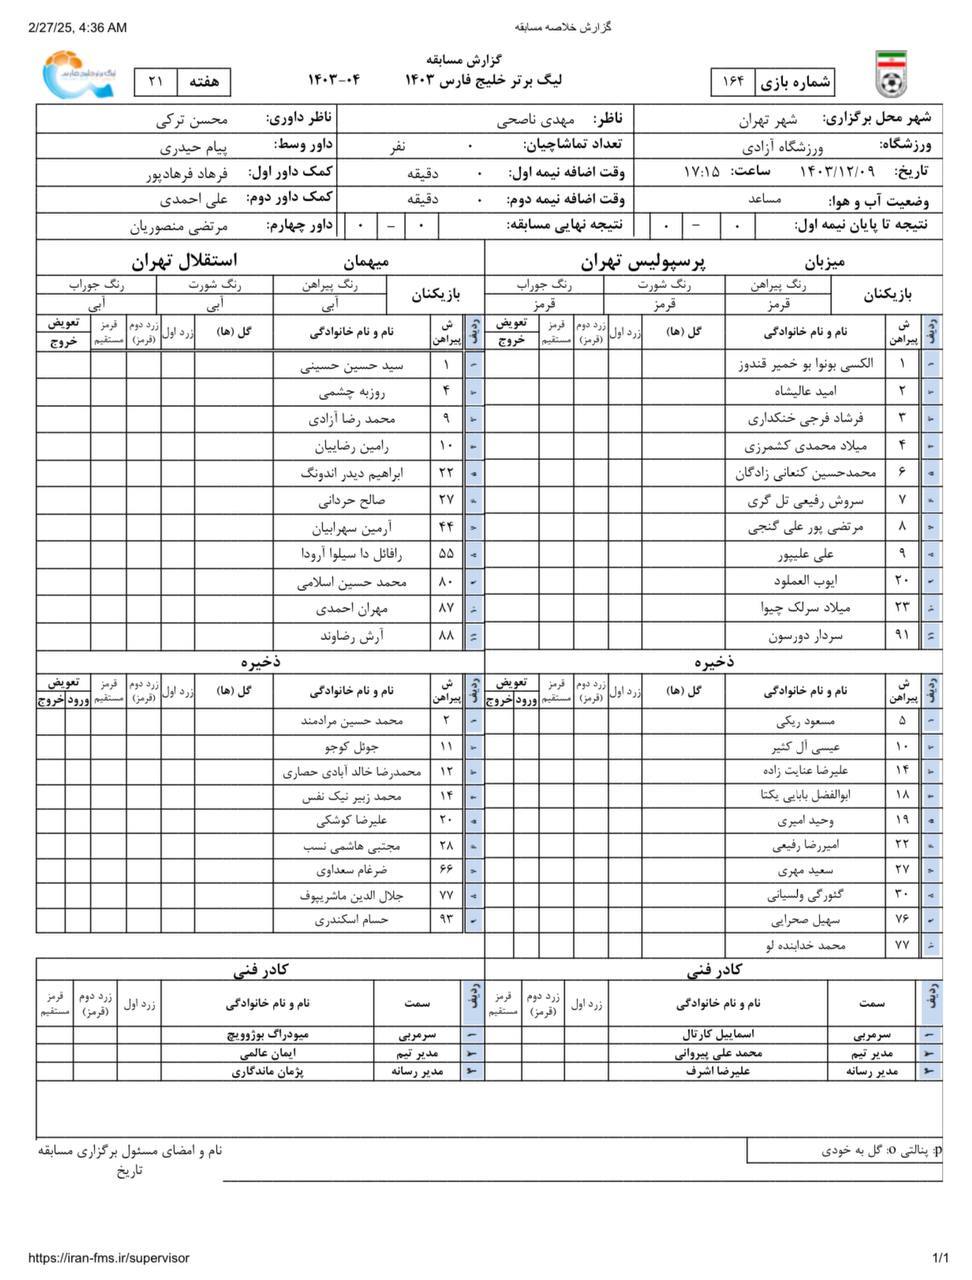 2/27/25, 4:36 AM گزارش خلاصه مسابقه
گزارش مسابقه
لیگ برتر خلیج فارس ۱۴۰۳ ۱۴۰۳-۰۴
شماره بازی ۱۶۴
هفته ۲۱
شهر محل برگزاری: شهر تهران ناظر: مهدی ناصحی ناظر داوری: محسن ترکی
ورزشگاه: ورزشگاه آزادی تعداد تماشاچیان: ۰ نفر داور وسط: پیام حیدری
تاریخ: ۱۴۰۳/۱۲/۰۹ ساعت: ۱۷:۱۵ وقت اضافه نیمه اول: ۰ دقیقه کمک داور اول: فرهاد فرهادپور
وضعیت آب و هوا: مساعد وقت اضافه نیمه دوم: ۰ دقیقه کمک داور دوم: علی احمدی
نتیجه تا پایان نیمه اول: ۰ – ۰ نتیجه نهایی مسابقه: ۰ – ۰ داور چهارم: مرتضی منصوریان
میزبان پرسپولیس تهران
بازیکنان رنگ پیراهن رنگ شورت رنگ جوراب
قرمز قرمز قرمز
ردیف ش پیراهن نام و نام خانوادگی گل (ها) زرد اول زرد دوم (قرمز) قرمز مستقیم تعویض خروج
۱ الکسی بونوا بو خمیر قندوز
۲ امید عالیشاه
۳ فرشاد فرجی خنکداری
۴ میلاد محمدی کشمرزی
۶ محمدحسین کنعانی زادگان
۷ سروش رفیعی تل گری
۸ مرتضی پور علی گنجی
۹ علی علیپور
۲۰ ایوب العملود
۲۳ میلاد سرلک چیوا
۹۱ سردار دورسون
ذخیره
ردیف ش پیراهن نام و نام خانوادگی گل (ها) زرد اول زرد دوم (قرمز) قرمز مستقیم تعویض ورود خروج
۵ مسعود ریکی
۱۰ عیسی آل کثیر
۱۴ علیرضا عنایت زاده
۱۸ ابوالفضل بابایی یکتا
۱۹ وحید امیری
۲۲ امیررضا رفیعی
۲۷ سعید مهری
۳۰ گئورگی ولسیانی
۷۶ سهیل صحرایی
۷۷ محمد خدابنده لو
کادر فنی
ردیف سمت نام و نام خانوادگی زرد اول زرد دوم (قرمز) قرمز مستقیم
۱ سرمربی اسماییل کارتال
۲ مدیر تیم محمد علی پیروانی
۳ مدیر رسانه علیرضا اشرف
میهمان استقلال تهران
بازیکنان رنگ پیراهن رنگ شورت رنگ جوراب
آبی آبی آبی
ردیف ش پیراهن نام و نام خانوادگی گل (ها) زرد اول زرد دوم (قرمز) قرمز مستقیم تعویض خروج
۱ سید حسین حسینی
۴ روزبه چشمی
۹ محمد رضا آزادی
۱۰ رامین رضاییان
۲۲ ابراهیم دیدر اندونگ
۲۷ صالح حردانی
۴۴ آرمین سهرابیان
۵۵ رافائل دا سیلوا آرودا
۸۰ محمد حسین اسلامی
۸۷ مهران احمدی
۸۸ آرش رضاوند
ذخیره
ردیف ش پیراهن نام و نام خانوادگی گل (ها) زرد اول زرد دوم (قرمز) قرمز مستقیم تعویض ورود خروج
۲ محمد حسین مرادمند
۱۱ جوئل کوجو
۱۲ محمدرضا خالد آبادی حصاری
۱۴ محمد زبیر نیک نفس
۲۰ علیرضا کوشکی
۲۸ مجتبی هاشمی نسب
۶۶ ضرغام سعداوی
۷۷ جلال الدین ماشریپوف
۹۳ حسام اسکندری
کادر فنی
ردیف سمت نام و نام خانوادگی زرد اول زرد دوم (قرمز) قرمز مستقیم
۱ سرمربی میودراگ بوژوویچ
۲ مدیر تیم ایمان عالمی
۳ مدیر رسانه پژمان ماندگاری
p: پنالتی o: گل به خودی
نام و امضای مسئول برگزاری مسابقه
تاریخ
https://iran-fms.ir/supervisor 1/1